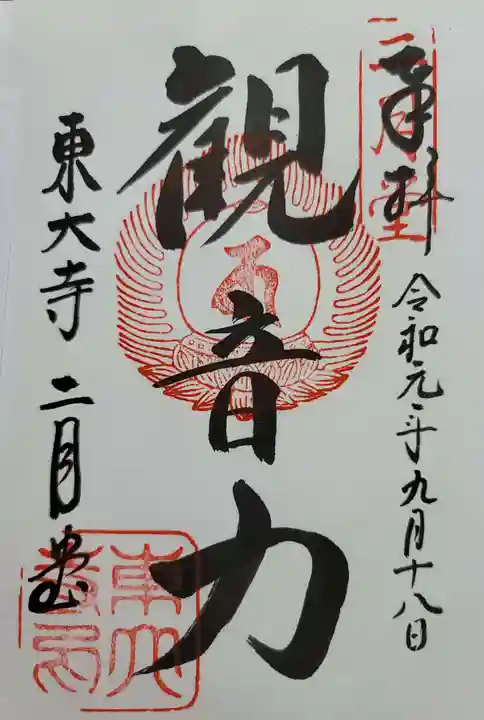 奉拝
令和元年九月十八日
観音力
東大寺 二月堂
二月堂